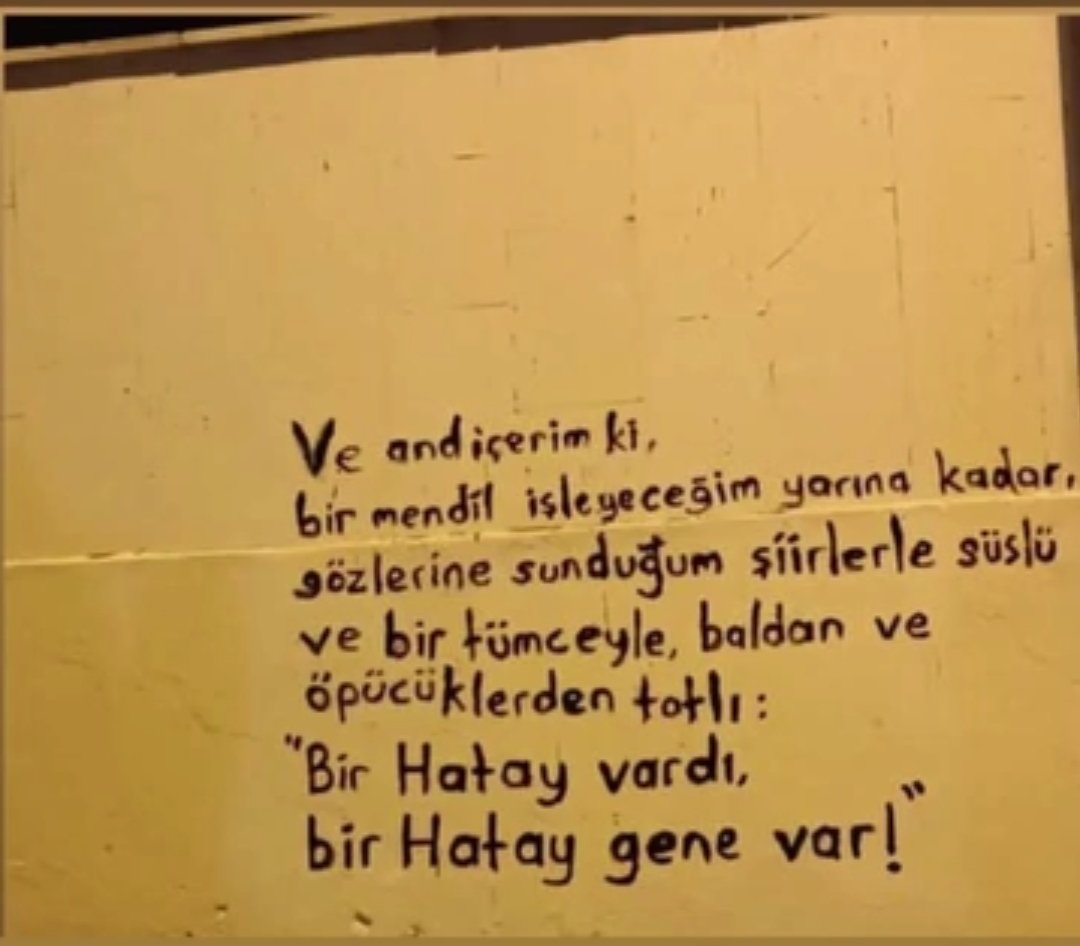 Ve and içerim ki,
bir mendil işleyeceğim yarına kadar,
gözlerine sunduğum şiirlerle süslü
ve bir tümceyle, baldan ve
öpücüklerden tatlı:
"Bir Hatay vardı,
bir Hatay gene var!"